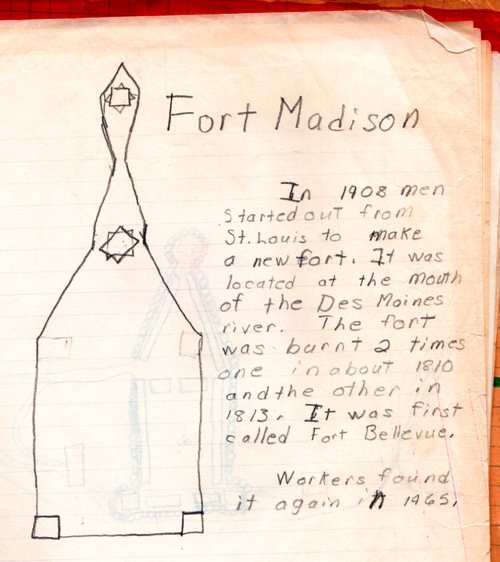 Fort Madison
In 1908 men
started out from
St. Louis to make
a new fort. It was
located at the mouth
of the Des Moines
river. The fort
was burnt 2 times
one in about 1810
and the other in
1813. It was first
called Fort Bellevue.
Workers found
it again in 1965.